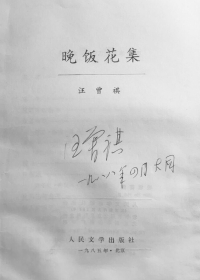 晚饭花集
汪曾祺
汪曾祺
人民文学出版社
一九八五年·北京